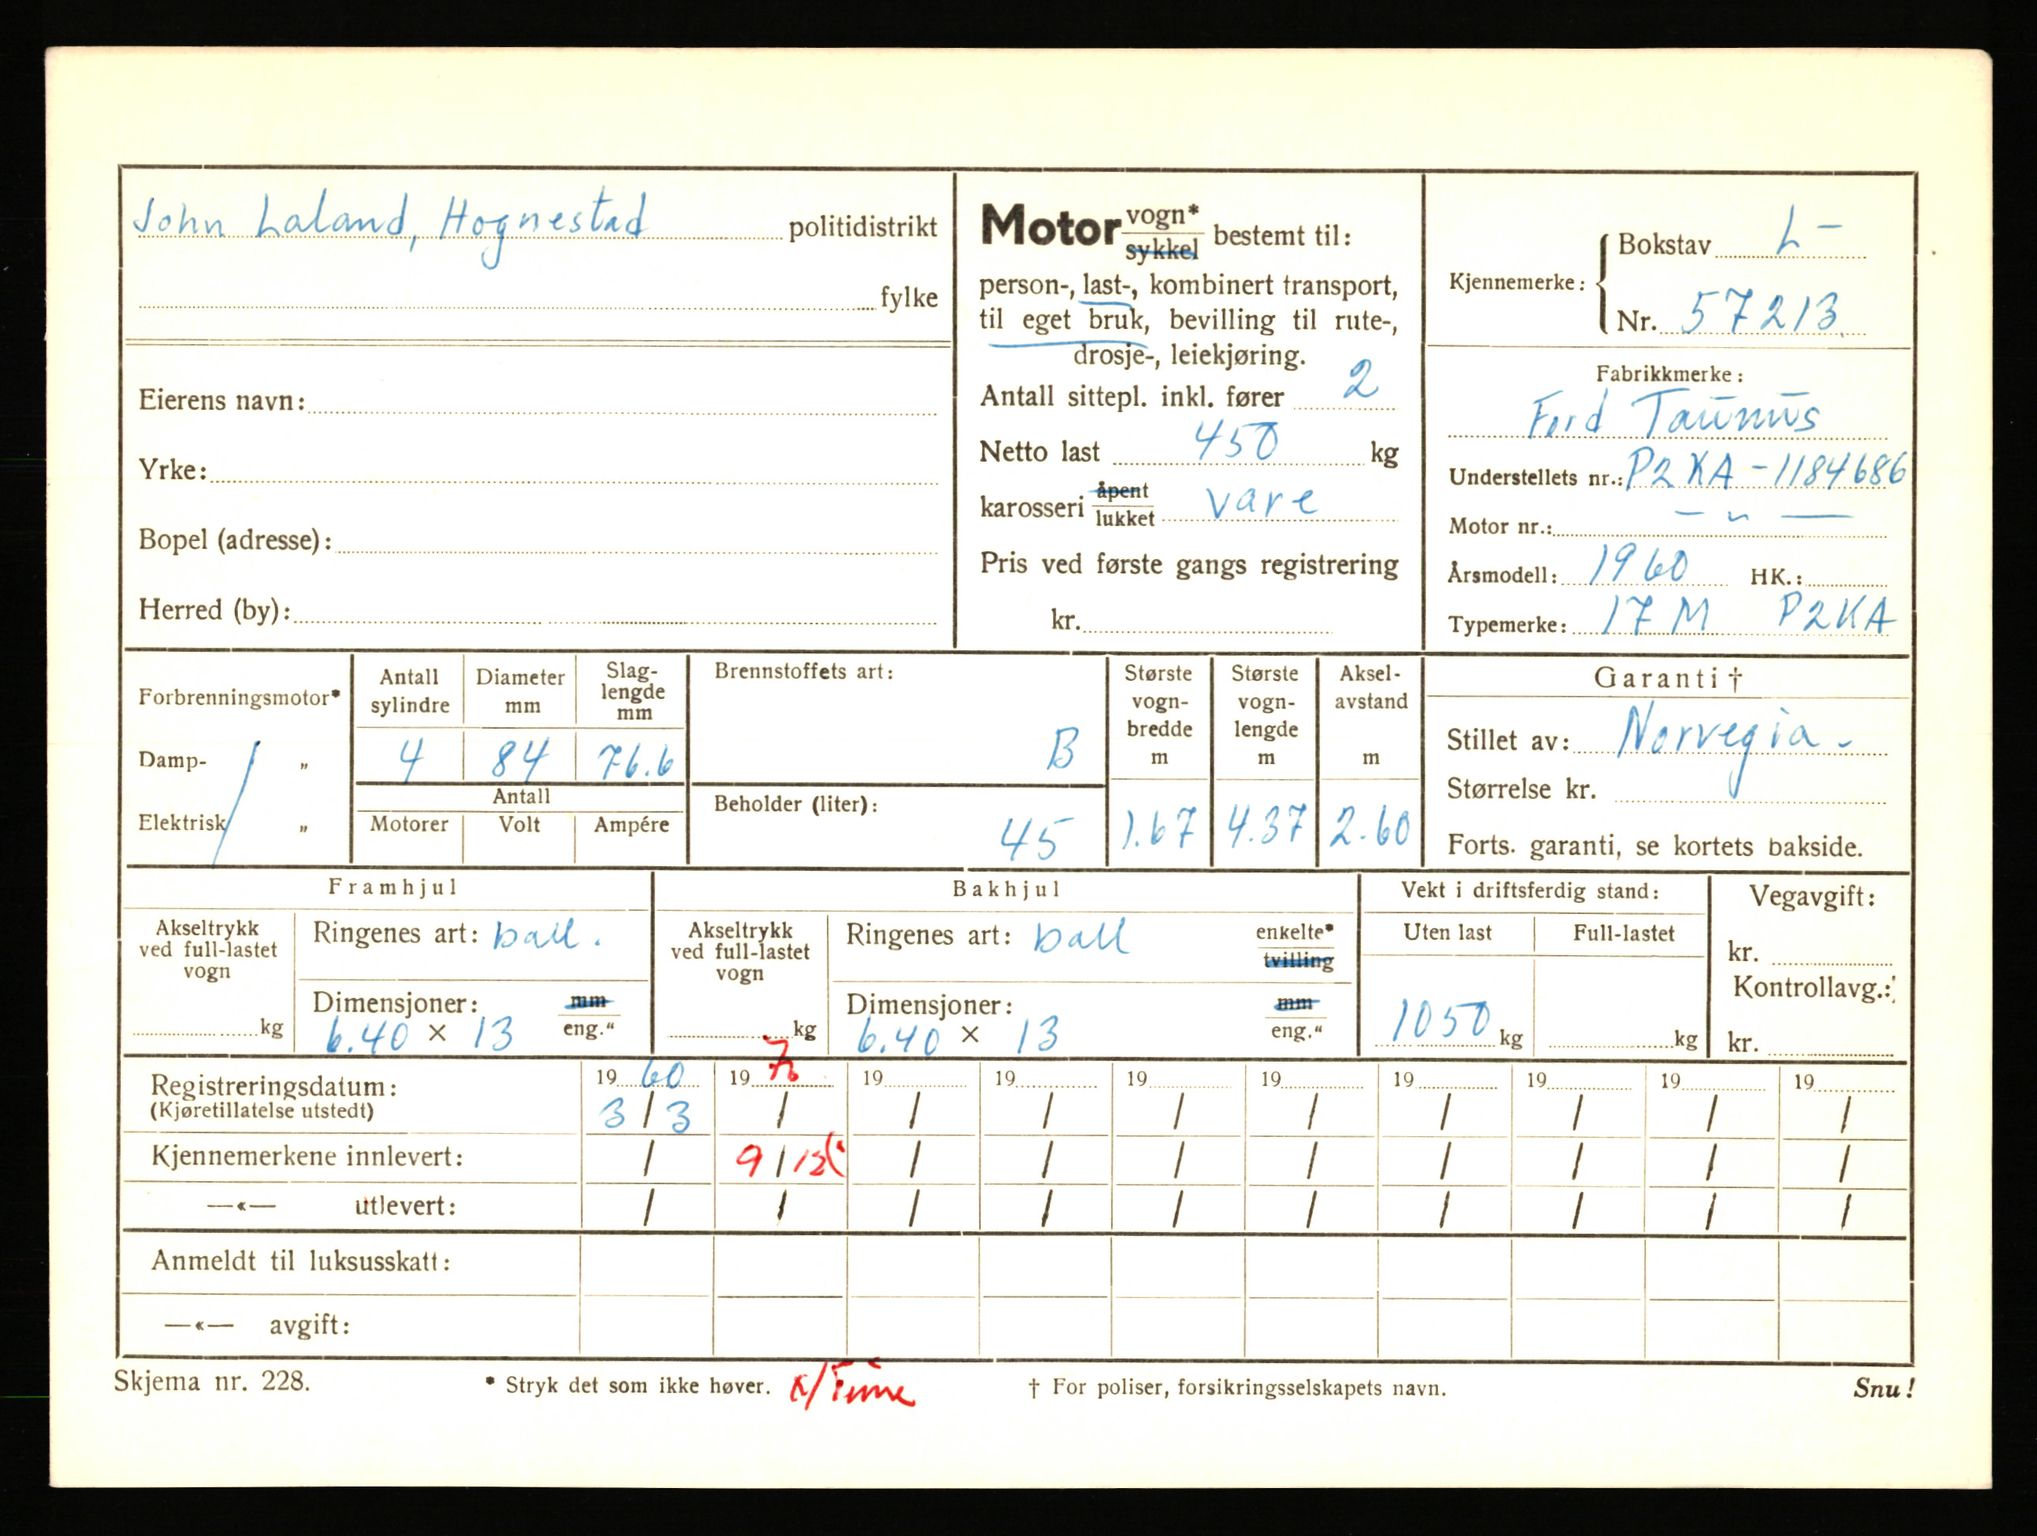 John Laland, Hognestad politidistrikt
fylke
Eierens navn:
Yrke:
Bopel (adresse):
Herred (by):
Motor vogn* / sykkel bestemt til:
person-, last-, kombinert transport,
til eget bruk, bevilling til rute-,
drosje-, leiekjøring.
Antall sittepl. inkl. fører 2
Netto last 450 kg
karosseri åpent / lukket vare
Pris ved første gangs registrering
kr.
Kjennemerke: Bokstav L-
Nr. 57213
Fabrikkmerke:
Ford Taunus
Understellets nr.: P2KA-1184686
Motor nr.: — " —
Årsmodell: 1960 HK.:
Typemerke: 17 M P2KA
Forbrenningsmotor*
Damp- „
Elektrisk „
Antall sylindre
4
Diameter mm
84
Slag-lengde mm
76.6
Antall
Motorer Volt Ampére
Brennstoffets art:
B
Beholder (liter):
45
Største vogn-bredde m
1.67
Største vogn-lengde m
4.37
Aksel-avstand m
2.60
Garanti †
Stillet av: Norvegia -
Størrelse kr.
Forts. garanti, se kortets bakside.
Framhjul
Akseltrykk
ved full-lastet
vogn
kg
Ringenes art: ball.
Dimensjoner: mm / eng."
6.40 × 13
Bakhjul
Akseltrykk
ved full-lastet
vogn
kg
Ringenes art: ball enkelte* / tvilling
Dimensjoner: mm / eng."
6.40 × 13
Vekt i driftsferdig stand:
Uten last Full-lastet
1050 kg kg
Vegavgift:
kr.
Kontrollavg.:
kr.
Registreringsdatum: 19 60 19 19 19 19 19 19 19 19 19
(Kjøretillatelse utstedt) 3/3 / / / / / / / / /
Kjennemerkene innlevert: / 9/12 / / / / / / / /
—«— utlevert: / / / / / / / / / /
Anmeldt til luksusskatt:
—«— avgift:
Skjema nr. 228. * Stryk det som ikke høver. K/Time † For poliser, forsikringsselskapets navn. Snu!